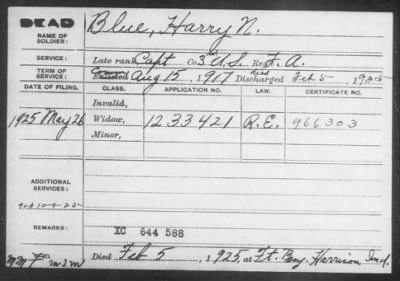 DEAD
Blue, Harry N.
NAME OF
SOLDIER:
SERVICE:
Late rank Capt Co. 3 U.S. Reg't F. A.
TERM OF
SERVICE:
Enlisted Aug 15, 1917 Discharged died Feb 5, 1925
DATE OF FILING. CLASS. APPLICATION NO. LAW. CERTIFICATE NO.
Invalid,
1925 May 26 Widow, 1233421 R.E. 966303
Minor,
ADDITIONAL
SERVICES:
REMARKS:
XC 644 588
Died Feb 5, 1925, at Ft. Benj. Harrison Ind.